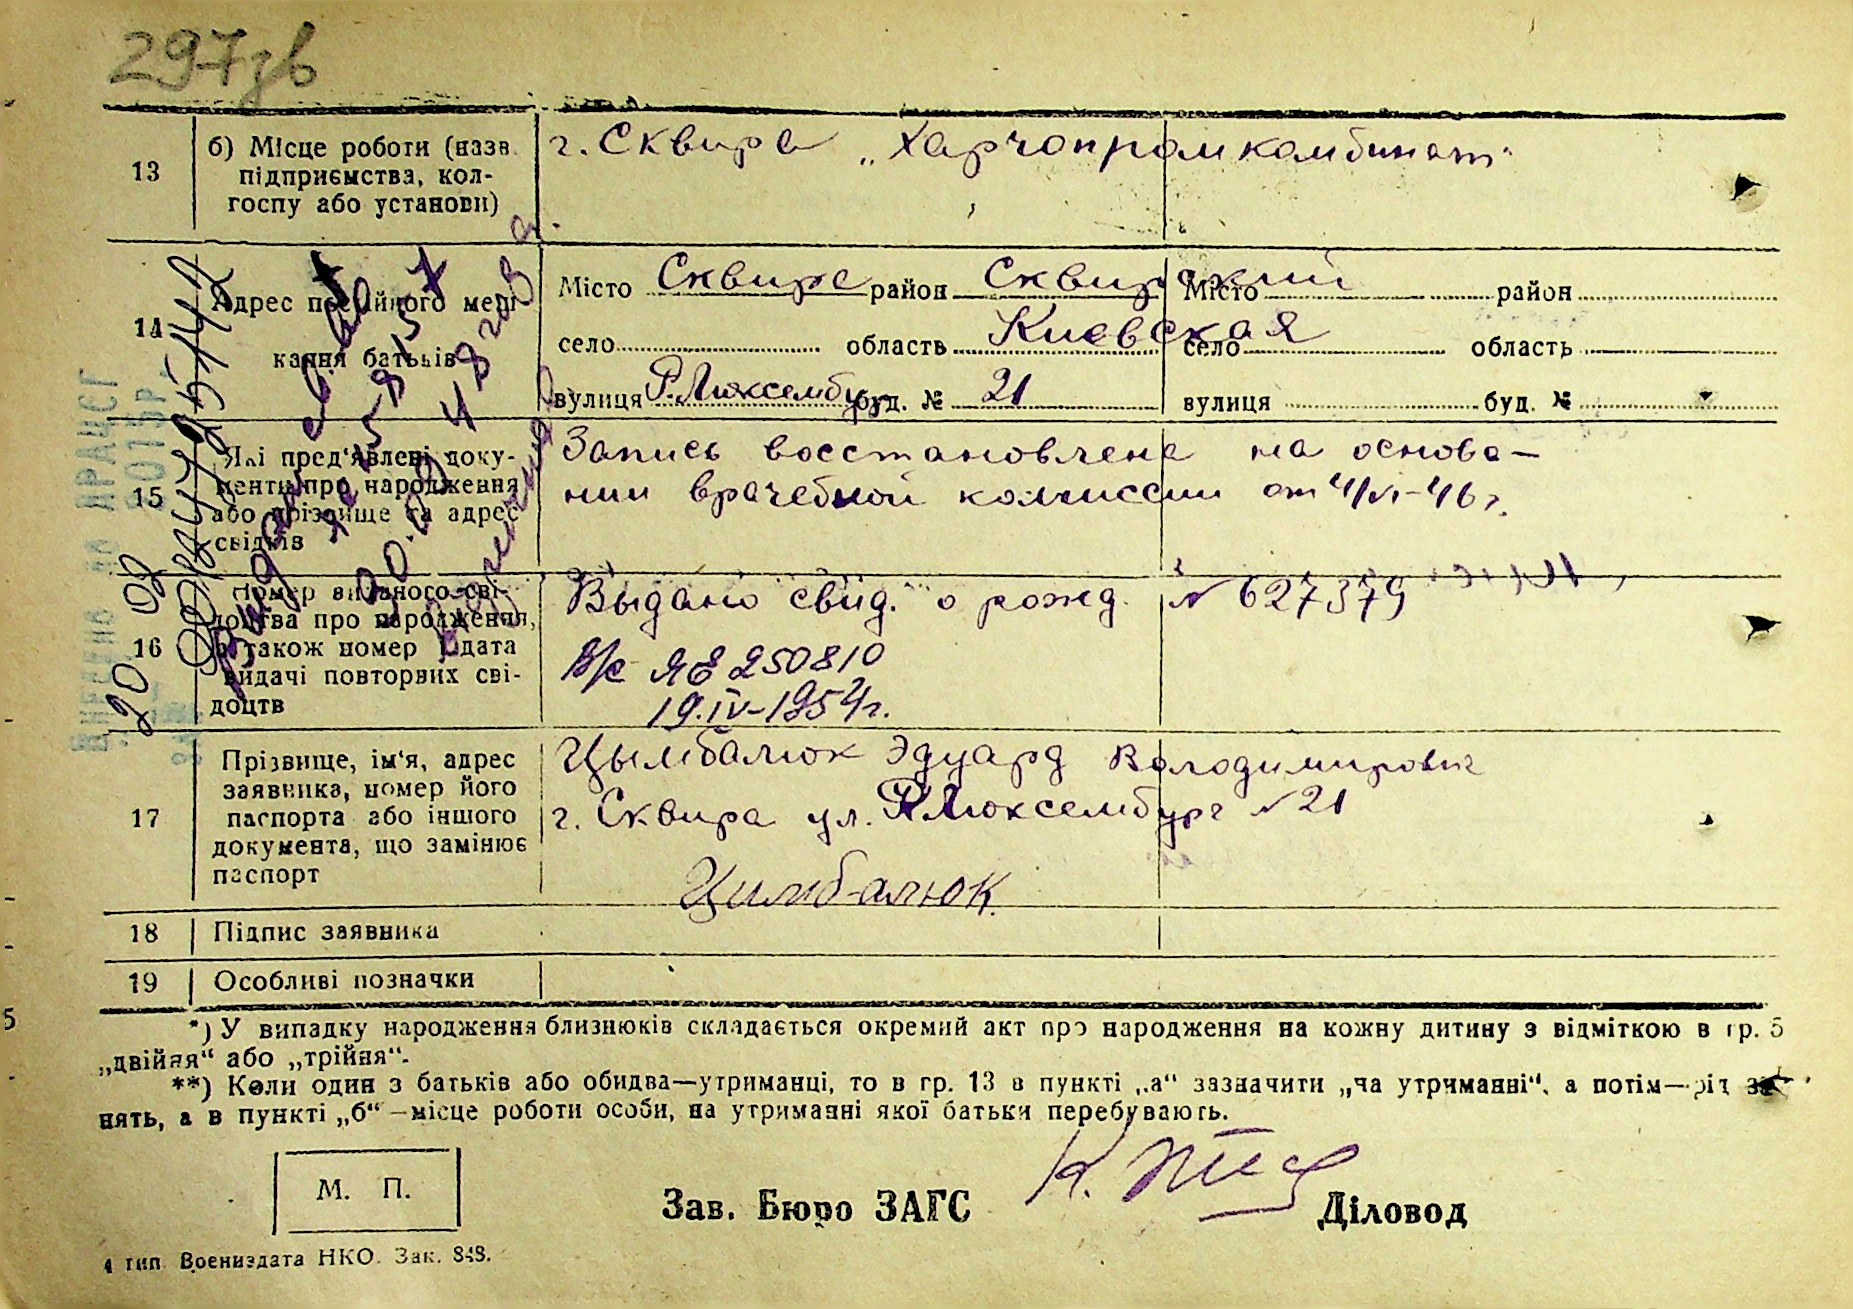 297зв
13
б) Місце роботи (назв.
підприємства, кол-
госпу або установи)
г. Сквира „Харчопромкомбинат"
14
Адрес постійного меш-
кання батьків
Місто Сквира район Сквирский
село область Киевская
вулиця Р. Люксембург буд. № 21
Місто район
село область
вулиця буд. №
15
Які пред'явлені доку-
менти про народження
або прізвище та адрес
свідків
Запись восстановлена на основа-
нии врачебной комиссии от 4/VI-46 г.
16
Номер виданого сві-
доцтва про народження,
а також номер і дата
видачі повторних сві-
доцтв
Выдано свид. о рожд. № 627379
В/с ЯЕ 250810
19.IV-1954 г.
17
Прізвище, ім'я, адрес
заявника, номер його
паспорта або іншого
документа, що замінює
паспорт
Цымбалюк Эдуард Володимирович
г. Сквира ул. Р Люксембург № 21
Цимбалюк.
18
Підпис заявника
19
Особливі позначки
*) У випадку народження близнюків складається окремий акт про народження на кожну дитину з відміткою в гр. 5
„двійня“ або „трійня“.
**) Коли один з батьків або обидва—утриманці, то в гр. 13 в пункті „а“ зазначити „на утриманні“, а потім—рід за-
нять, а в пункті „б“ —місце роботи особи, на утриманні якої батьки перебувають.
М. П.
Зав. Бюро ЗАГС
Діловод
4 тип. Воениздата НКО. Зак. 848.